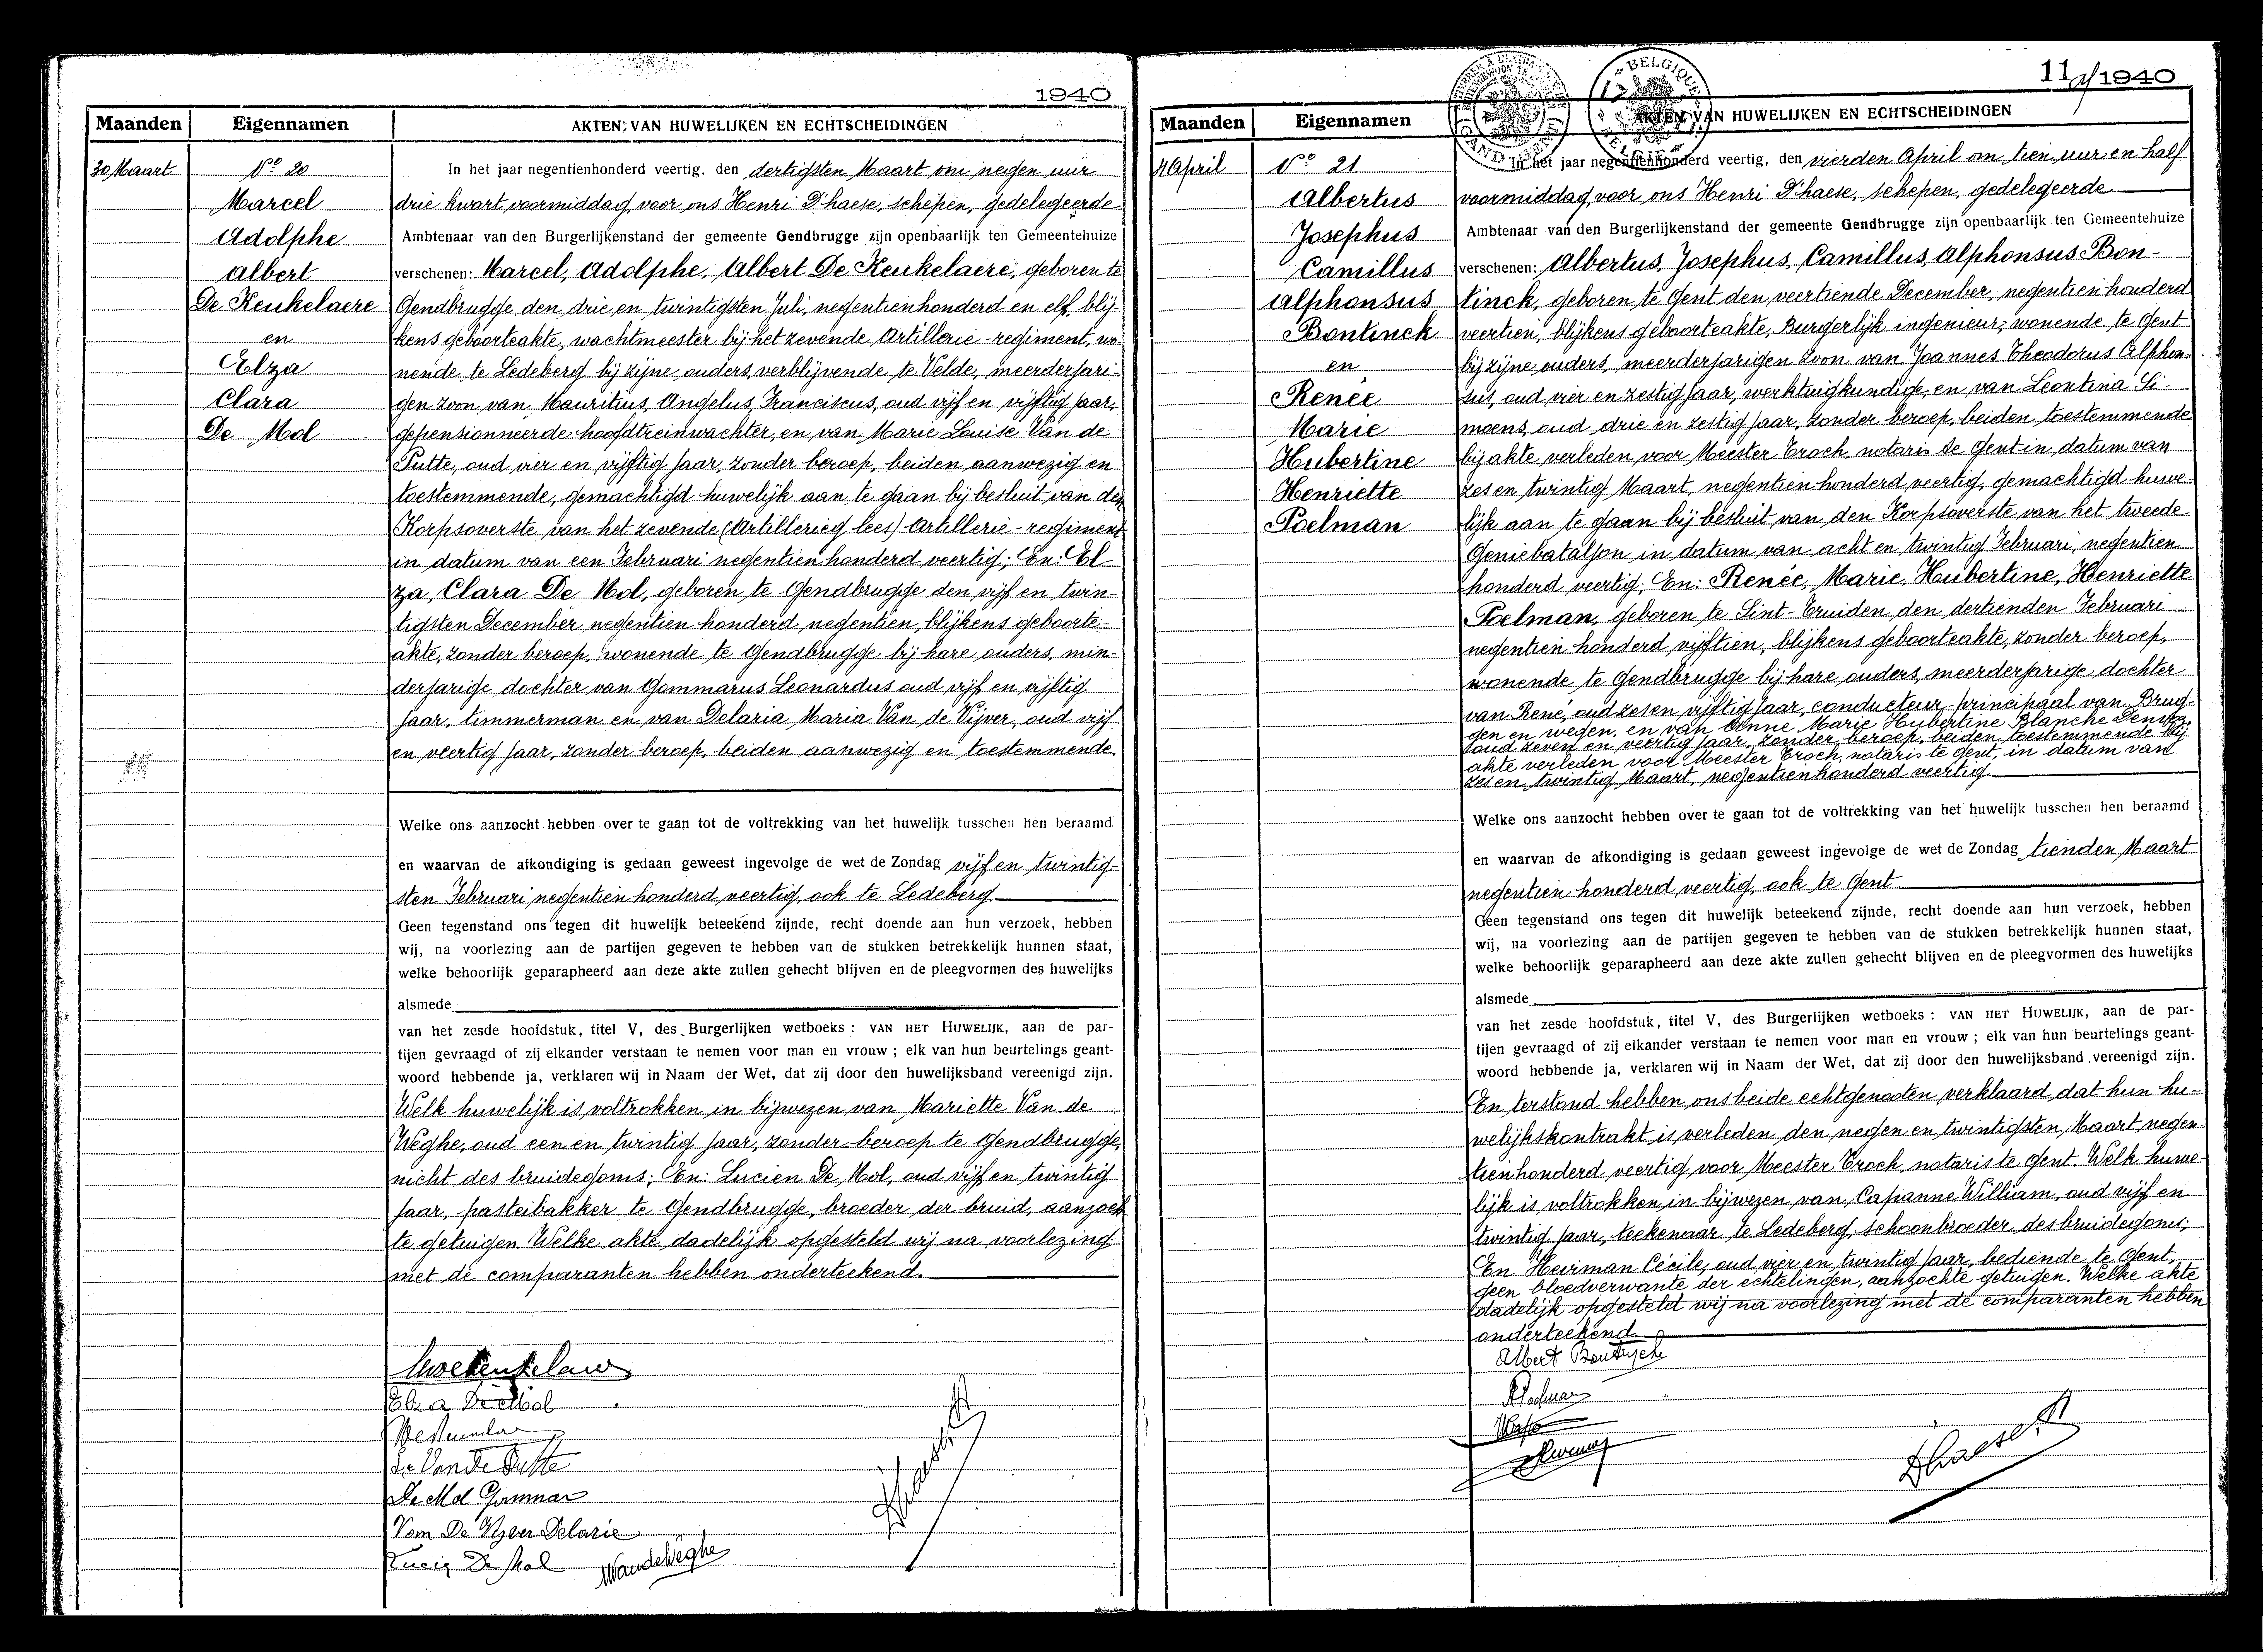 1940
Maanden Eigennamen AKTEN VAN HUWELIJKEN EN ECHTSCHEIDINGEN
30 Maart
No 20
Marcel
Adolphe
Albert
De Keukelaere
en
Elza
Clara
De Mol
In het jaar negentienhonderd veertig, den dertigsten Maart om negen uur
drie kwart voormiddag, voor ons Henri D'haese, schepen, gedelegeerde
Ambtenaar van den Burgerlijkenstand der gemeente Gendbrugge zijn openbaarlijk ten Gemeentehuize
verschenen: Marcel, Adolphe, Albert De Keukelaere, geboren te
Gendbrugge den drie en twintigsten Juli, negentienhonderd en elf, blij-
kens geboorteakte, wachtmeester bij het zevende Artillerie-regiment, wo-
nende te Ledeberg bij zijne ouders, verblijvende te Velde, meerderjari-
gen zoon van Mauritius, Angelus, Franciscus, oud vijf en vijftig jaar,
gepensionneerde hoofdtreinwachter, en van Marie Louise Van de
Putte, oud vier en vijftig jaar, zonder beroep, beiden aanwezig en
toestemmende, gemachtigd huwelijk aan te gaan bij besluit van den
Korpsoverste van het zevende (Artillerieg lees) Artillerie-regiment
in datum van een Februari negentien honderd veertig; En: El-
za, Clara De Mol, geboren te Gendbrugge den vijf en twin-
tigsten December negentien honderd negentien, blijkens geboorte-
akte, zonder beroep, wonende te Gendbrugge bij hare ouders, min-
derjarige dochter van Gommarus Leonardus oud vijf en vijftig
jaar, timmerman en van Delaria Maria Van de Vijver, oud vijf
en veertig jaar, zonder beroep, beiden aanwezig en toestemmende.
Welke ons aanzocht hebben over te gaan tot de voltrekking van het huwelijk tusschen hen beraamd
en waarvan de afkondiging is gedaan geweest ingevolge de wet de Zondag vijf en twintig-
sten Februari negentien honderd veertig, ook te Ledeberg
Geen tegenstand ons tegen dit huwelijk beteekend zijnde, recht doende aan hun verzoek, hebben
wij, na voorlezing aan de partijen gegeven te hebben van de stukken betrekkelijk hunnen staat,
welke behoorlijk geparapheerd aan deze akte zullen gehecht blijven en de pleegvormen des huwelijks
alsmede
van het zesde hoofdstuk, titel V, des Burgerlijken wetboeks : VAN HET HUWELIJK, aan de par-
tijen gevraagd of zij elkander verstaan te nemen voor man en vrouw ; elk van hun beurtelings geant-
woord hebbende ja, verklaren wij in Naam der Wet, dat zij door den huwelijksband vereenigd zijn.
Welk huwelijk is voltrokken in bijwezen van Mariette Van de
Weghe, oud een en twintig jaar, zonder beroep te Gendbrugge,
nicht des bruidegoms; En: Lucien De Mol, oud vijf en twintig
jaar, pasteibakker te Gendbrugge, broeder der bruid, aanzoch
te getuigen Welke akte dadelijk opgesteld wij na voorlezing
met de comparanten hebben onderteekend.
Elza De Mol
De Mol Gommar
Van De Vyver Delarie
De Mol
MVandeWeghe
11 1940
Maanden Eigennamen AKTEN VAN HUWELIJKEN EN ECHTSCHEIDINGEN
BELGIQUE
4 April
No 21
Albertus
Josephus
Camillus
Alphonsus
Bontinck
en
Renée
Marie
Hubertine
Henriette
Poelman
In het jaar negentienhonderd veertig, den vierden April om tien uur en half
voormiddag, voor ons Henri D'haese, schepen, gedelegeerde
Ambtenaar van den Burgerlijkenstand der gemeente Gendbrugge zijn openbaarlijk ten Gemeentehuize
verschenen: Albertus, Josephus, Camillus, Alphonsus Bon-
tinck, geboren te Gent den veertiende December, negentien honderd
veertien, blijkens geboorteakte, Burgerlijk ingenieur, wonende te Gent
bij zijne ouders, meerderjarigen zoon van Joannes Theodorus Alphon-
sus, oud vier en zestig jaar, werktuigkundige, en van Leontina Si-
moens, oud drie en zestig jaar, zonder beroep, beiden toestemmende
bij akte verleden voor Meester Troch, notaris te Gent in datum van
zes en twintig Maart, negentien honderd veertig, gemachtigd huwe-
lijk aan te gaan bij besluit van den Korpsoverste van het tweede
Geniebataljon in datum van acht en twintig Februari, negentien
honderd veertig; En: Renée, Marie, Hubertine, Henriette
Poelman, geboren te Sint-Truiden den dertienden Februari
negentien honderd vijftien, blijkens geboorteakte, zonder beroep,
wonende te Gendbrugge bij hare ouders, meerderjarige dochter
van René, oud zes en vijftig jaar, conducteur-principaal van Brug-
gen en wegen, en van Anne Marie Hubertine Blanche
oud zeven en veertig jaar, zonder beroep, beiden toestemmende bij
akte verleden voor Meester Troch, notaris te Gent, in datum van
zes en twintig Maart, negentienhonderd veertig
Welke ons aanzocht hebben over te gaan tot de voltrekking van het huwelijk tusschen hen beraamd
en waarvan de afkondiging is gedaan geweest ingevolge de wet de Zondag tienden Maart
negentien honderd veertig, ook te Gent
Geen tegenstand ons tegen dit huwelijk beteekend zijnde, recht doende aan hun verzoek, hebben
wij, na voorlezing aan de partijen gegeven te hebben van de stukken betrekkelijk hunnen staat,
welke behoorlijk geparapheerd aan deze akte zullen gehecht blijven en de pleegvormen des huwelijks
alsmede
van het zesde hoofdstuk, titel V, des Burgerlijken wetboeks : VAN HET HUWELIJK, aan de par-
tijen gevraagd of zij elkander verstaan te nemen voor man en vrouw ; elk van hun beurtelings geant-
woord hebbende ja, verklaren wij in Naam der Wet, dat zij door den huwelijksband vereenigd zijn.
En terstond hebben ons beide echtgenooten verklaard dat hun hu-
welijkskontrakt is verleden den negen en twintigsten Maart negen-
tienhonderd veertig voor Meester Troch, notaris te Gent. Welk huwe-
lijk is voltrokken in bijwezen van Capanne William, oud vijf en
twintig jaar, teekenaar te Ledeberg, schoonbroeder des bruidegoms;
En Heirman Cécile, oud vier en twintig jaar, bediende te Gent,
geen bloedverwante der echtelingen, aanzochte getuigen. Welke akte
dadelijk opgesteld wij na voorlezing met de comparanten hebben
onderteekend.
Albert Bontinck
Dhaese H